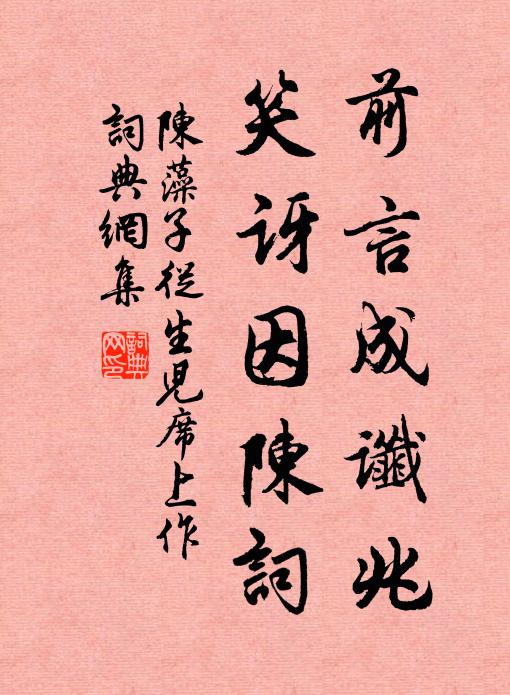 前言成讖兆
笑訝因陳詞
陳藻子從生兒席上作
詞典網集
詞典網印